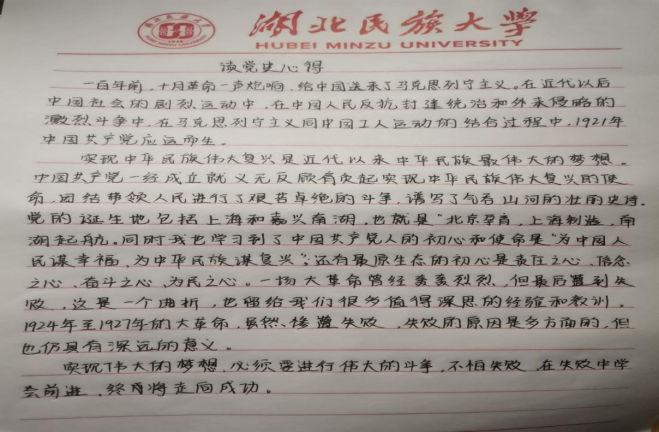 湖北民族大学
HUBEI MINZU UNIVERSITY
读党史心得
一百年前,十月革命一声炮响,给中国送来了马克思列宁主义。在近代以后
中国社会的剧烈运动中,在中国人民反抗封建统治和外来侵略的
激烈斗争中,在马克思列宁主义同中国工人运动的结合过程中,1921年
中国共产党应运而生。
实现中华民族伟大复兴是近代以来中华民族最伟大的梦想。
中国共产党一经成立就义无反顾肩负起实现中华民族伟大复兴的使
命,团结带领人民进行了艰苦卓绝的斗争,谱写了气吞山河的壮丽史诗。
党的诞生地包括上海和嘉兴南湖,也就是“北京孕育,上海制造,南
湖起航。同时我也学习到了中国共产党人的初心和使命是“为中国人
民谋幸福,为中华民族谋复兴”;还有最原生态的初心是责任之心、信念
之心、奋斗之心、为民之心。一场大革命曾经轰轰烈烈,但最后遭到失
败,这是一个曲折,也留给我们很多值得深思的经验和教训。
1924年至1927年的大革命,虽然惨遭失败,失败的原因是多方面的,但
也仍具有深远的意义。
实现伟大的梦想,必须要进行伟大的斗争,不怕失败,在失败中学
会前进,终有将走向成功。